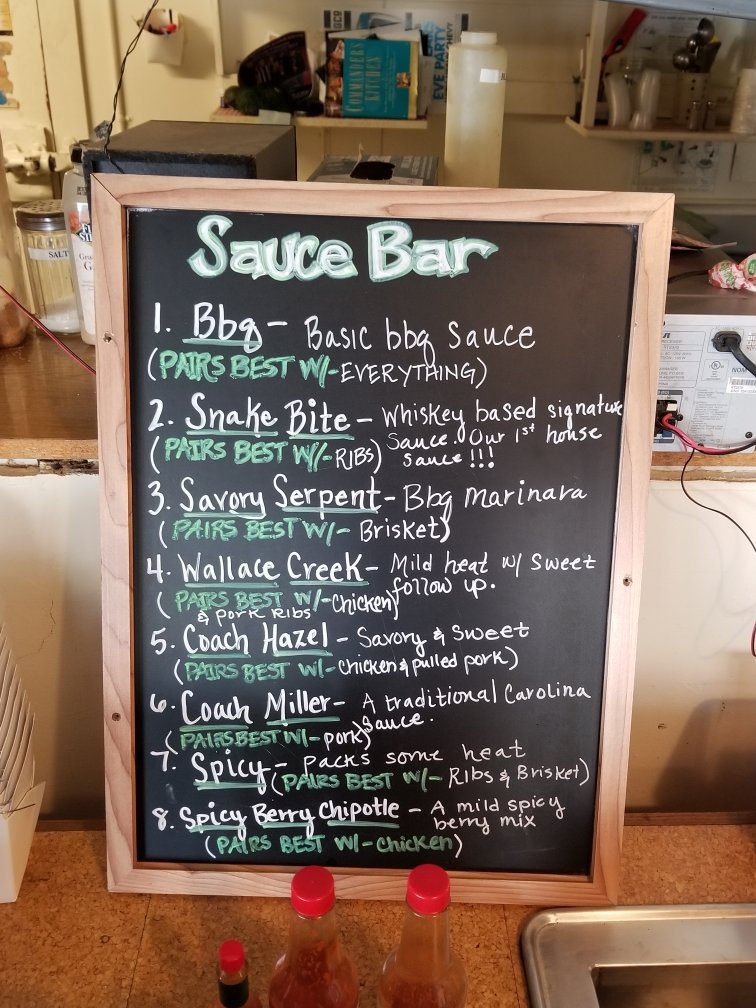 COMMANDER'S
KITCHEN
EVE PARTY
SALT
Sauce Bar
1. Bbq - Basic bbq sauce
(PAIRS BEST W/- EVERYTHING)
2. Snake Bite - Whiskey based signature
Sauce. Our 1st house
(PAIRS BEST W/- RIBS) sauce!!!
3. Savory Serpent - Bbq marinara
(PAIRS BEST W/- Brisket)
4. Wallace Creek - Mild heat w/ Sweet
follow up.
(PAIRS BEST W/- Chicken)
& Pork Ribs
5. Coach Hazel - Savory & Sweet
(PAIRS BEST W/- chicken & pulled pork)
6. Coach Miller - A traditional Carolina
Sauce.
(PAIRS BEST W/- pork)
7. Spicy - Packs some heat
(PAIRS BEST W/- Ribs & Brisket)
8. Spicy Berry Chipotle - A mild spicy
berry mix
(PAIRS BEST W/- chicken)